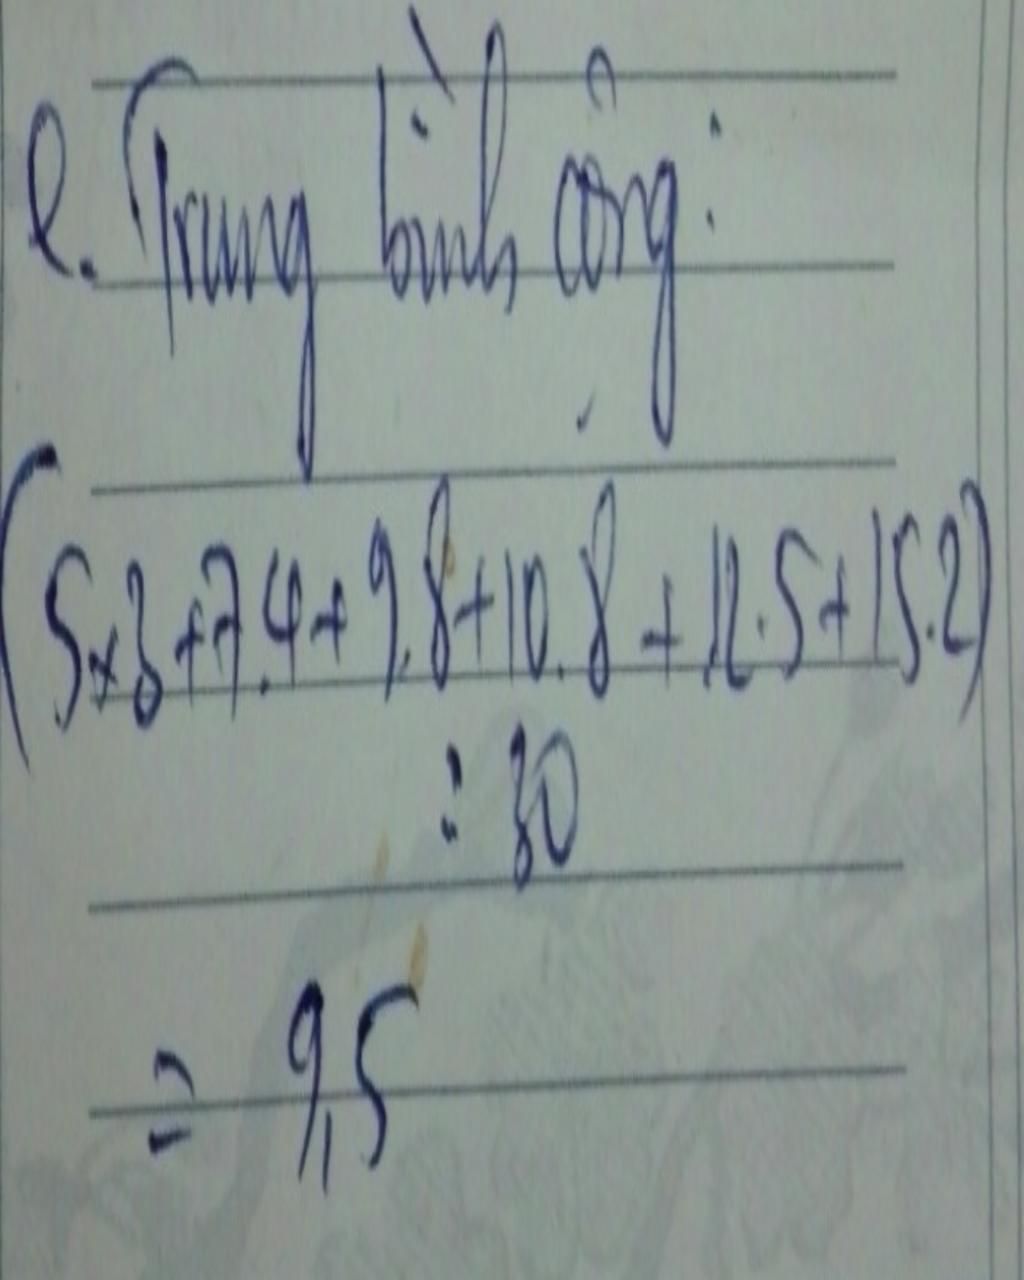 e. Trung bình cộng:
(5x3+7.4+9.8+10.8+12.5+15.2)
: 30
= 9,5